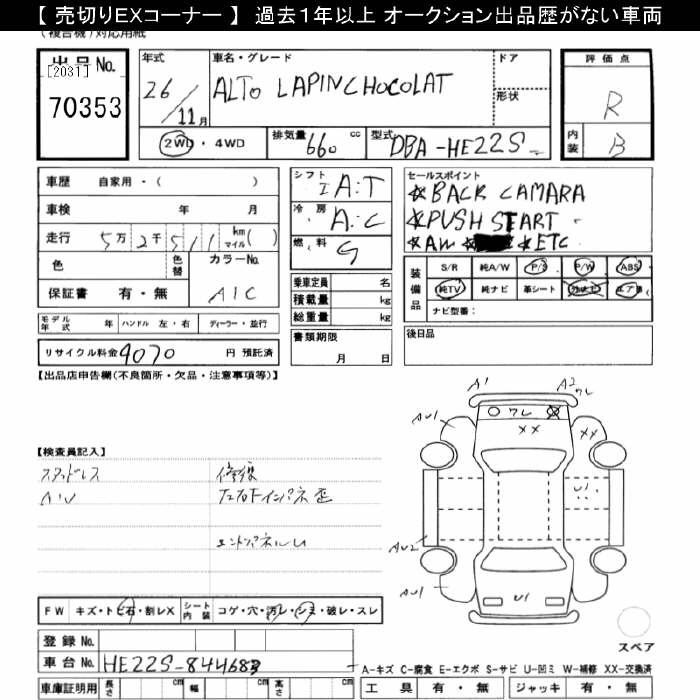 【 売切りEXコーナー 】 過去1年以上 オークション出品歴がない車両
(複合機)対応用紙
出品No.
[2031]
70353
年式
26/11月
車名・グレード
ALTO LAPINCHOCOLAT
ドア
形状
評価点
R
内装
B
2WD・4WD
排気量
660 cc
型式
DBA-HE22S
車歴 自家用・( )
車検 年 月
走行 5万2千511 km マイル( )
色
色替
カラーNo.
A1C
保証書 有・無
シフト
IA:T
冷房
A:C
燃料
G
乗車定員 名
積載量 kg
総重量 kg
書類期限
月 日
セールスポイント
☆BACK CAMARA
☆PUSH START
☆AW ☆ETC
装備品
S/R 純A/W P/S P/W ABS
純TV 純ナビ 革シート エア
ナビ型番:
後日品
モデル年式 年 ハンドル 左・右 ディーラー・並行
リサイクル料金 9070 円 預託済
【出品店申告欄(不良箇所・欠品・注意事項等)】
【検査員記入】
スタッドレス 修復
AW 左右Fインパネ歪
エンドパネルU
A1
A2 ワレ
ワレ
AU1
XX
XX
U1
AU2
AU1
U1
スペア
FW キズ・トビ石・割レX シート内装 コゲ・穴・汚レ・シミ・破レ・スレ
登録No.
車台No. HE22S-844683
車庫証明用 長さ cm 幅 cm 高さ cm
A-キズ C-腐食 E-エクボ S-サビ U-凹ミ W-補修 XX-交換済
工具 有・無 ジャッキ 有・無